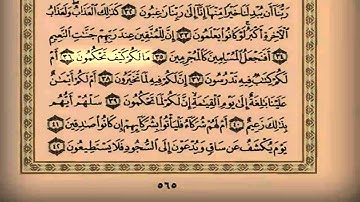 رَبُّنَا أَن يُبْدِلَنَا خَيْرًا مِّنْهَا إِنَّا إِلَىٰ رَبِّنَا رَاغِبُونَ ٣٢ كَذَٰلِكَ الْعَذَابُ وَلَعَذَابُ
الْآخِرَةِ أَكْبَرُ لَوْ كَانُوا يَعْلَمُونَ ٣٣ إِنَّ لِلْمُتَّقِينَ عِندَ رَبِّهِمْ جَنَّاتِ النَّعِيمِ
٣٤ أَفَنَجْعَلُ الْمُسْلِمِينَ كَالْمُجْرِمِينَ ٣٥ مَا لَكُمْ كَيْفَ تَحْكُمُونَ ٣٦ أَمْ
لَكُمْ كِتَابٌ فِيهِ تَدْرُسُونَ ٣٧ إِنَّ لَكُمْ فِيهِ لَمَا تَخَيَّرُونَ ٣٨ أَمْ لَكُمْ أَيْمَانٌ
عَلَيْنَا بَالِغَةٌ إِلَىٰ يَوْمِ الْقِيَامَةِ إِنَّ لَكُمْ لَمَا تَحْكُمُونَ ٣٩ سَلْهُمْ أَيُّهُم
بِذَٰلِكَ زَعِيمٌ ٤٠ أَمْ لَهُمْ شُرَكَاءُ فَلْيَأْتُوا بِشُرَكَائِهِمْ إِن كَانُوا صَادِقِينَ ٤١
يَوْمَ يُكْشَفُ عَن سَاقٍ وَيُدْعَوْنَ إِلَى السُّجُودِ فَلَا يَسْتَطِيعُونَ ٤٢
٥٦٥